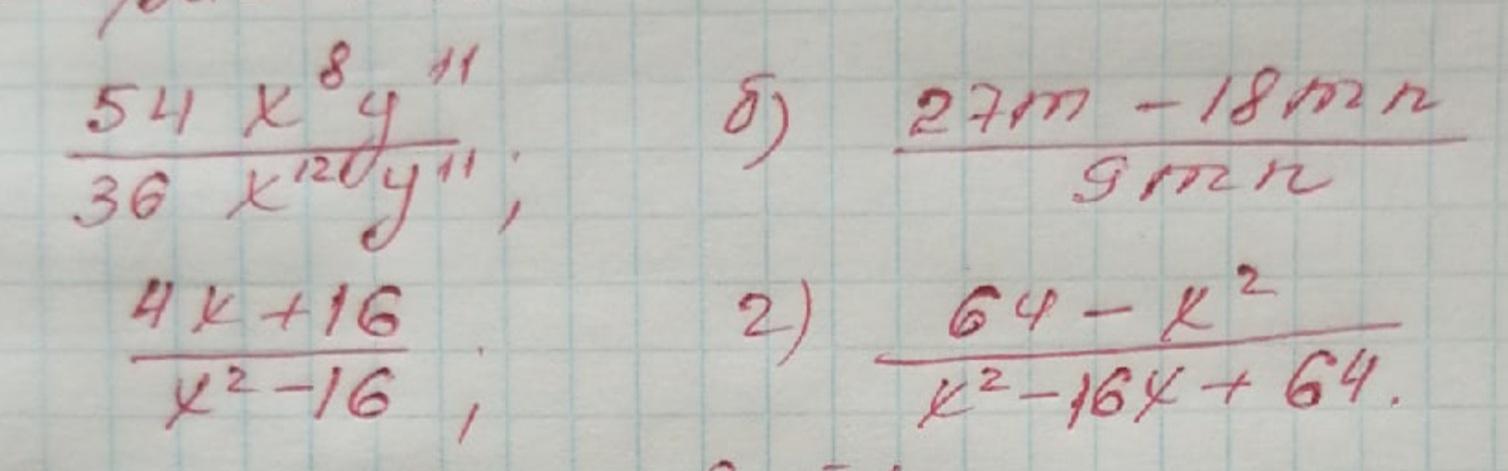 54 x⁸ y¹¹ / 36 x¹² y¹¹ ; б) 27m - 18mn / 9mn
4x + 16 / x² - 16 ; г) 64 - x² / x² - 16x + 64.